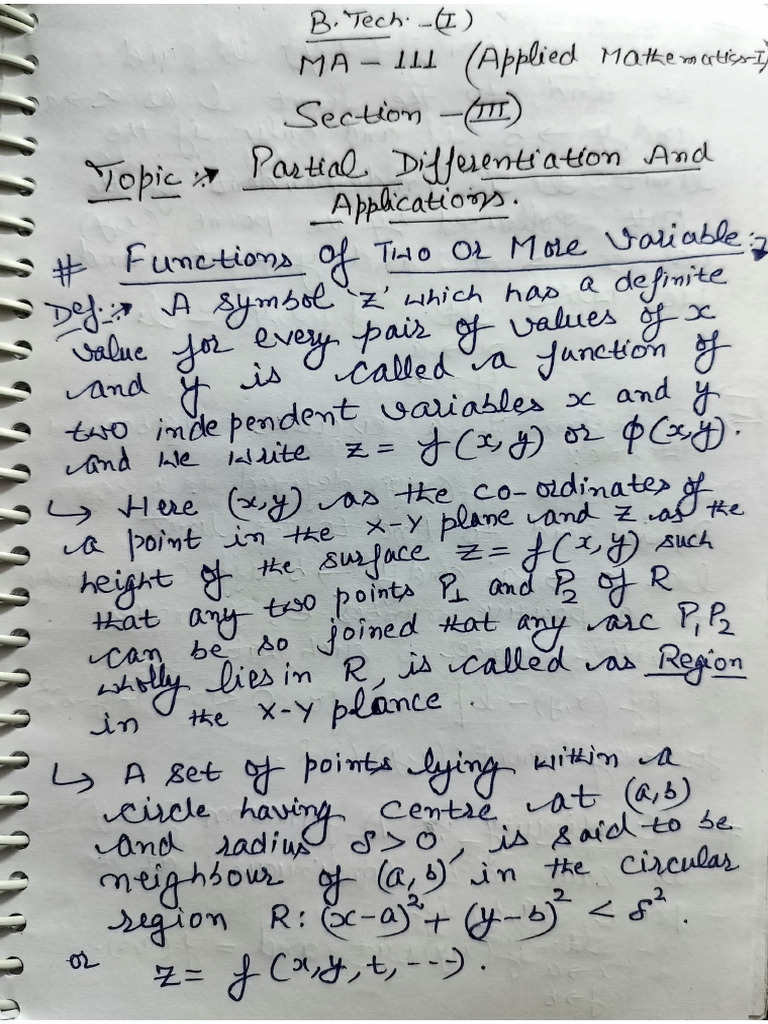 B.Tech. -(I)
MA - 111 (Applied Mathematics-I)
Section -(III)
Topic :→ Partial Differentiation And
Applications.
# Functions of Two Or More Variable :→
Def :→ A symbol 'z' which has a definite
value for every pair of values of x
and y is called a function of
two independent variables x and y
and we write z = f(x,y) or ϕ(x,y).
↳ Here (x,y) as the co-ordinates of
a point in the X-Y plane and z as the
height of the surface z = f(x,y) such
that any two points P1 and P2 of R
can be so joined that any arc P1P2
wholly lies in R, is called as Region
in the X-Y plance.
↳ A set of points lying within a
circle having centre at (a,b)
and radius δ>0, is said to be
neighbour of (a,b) in the circular
region R: (x-a)²+(y-b)² < δ².
or z = f(x,y,t,---).